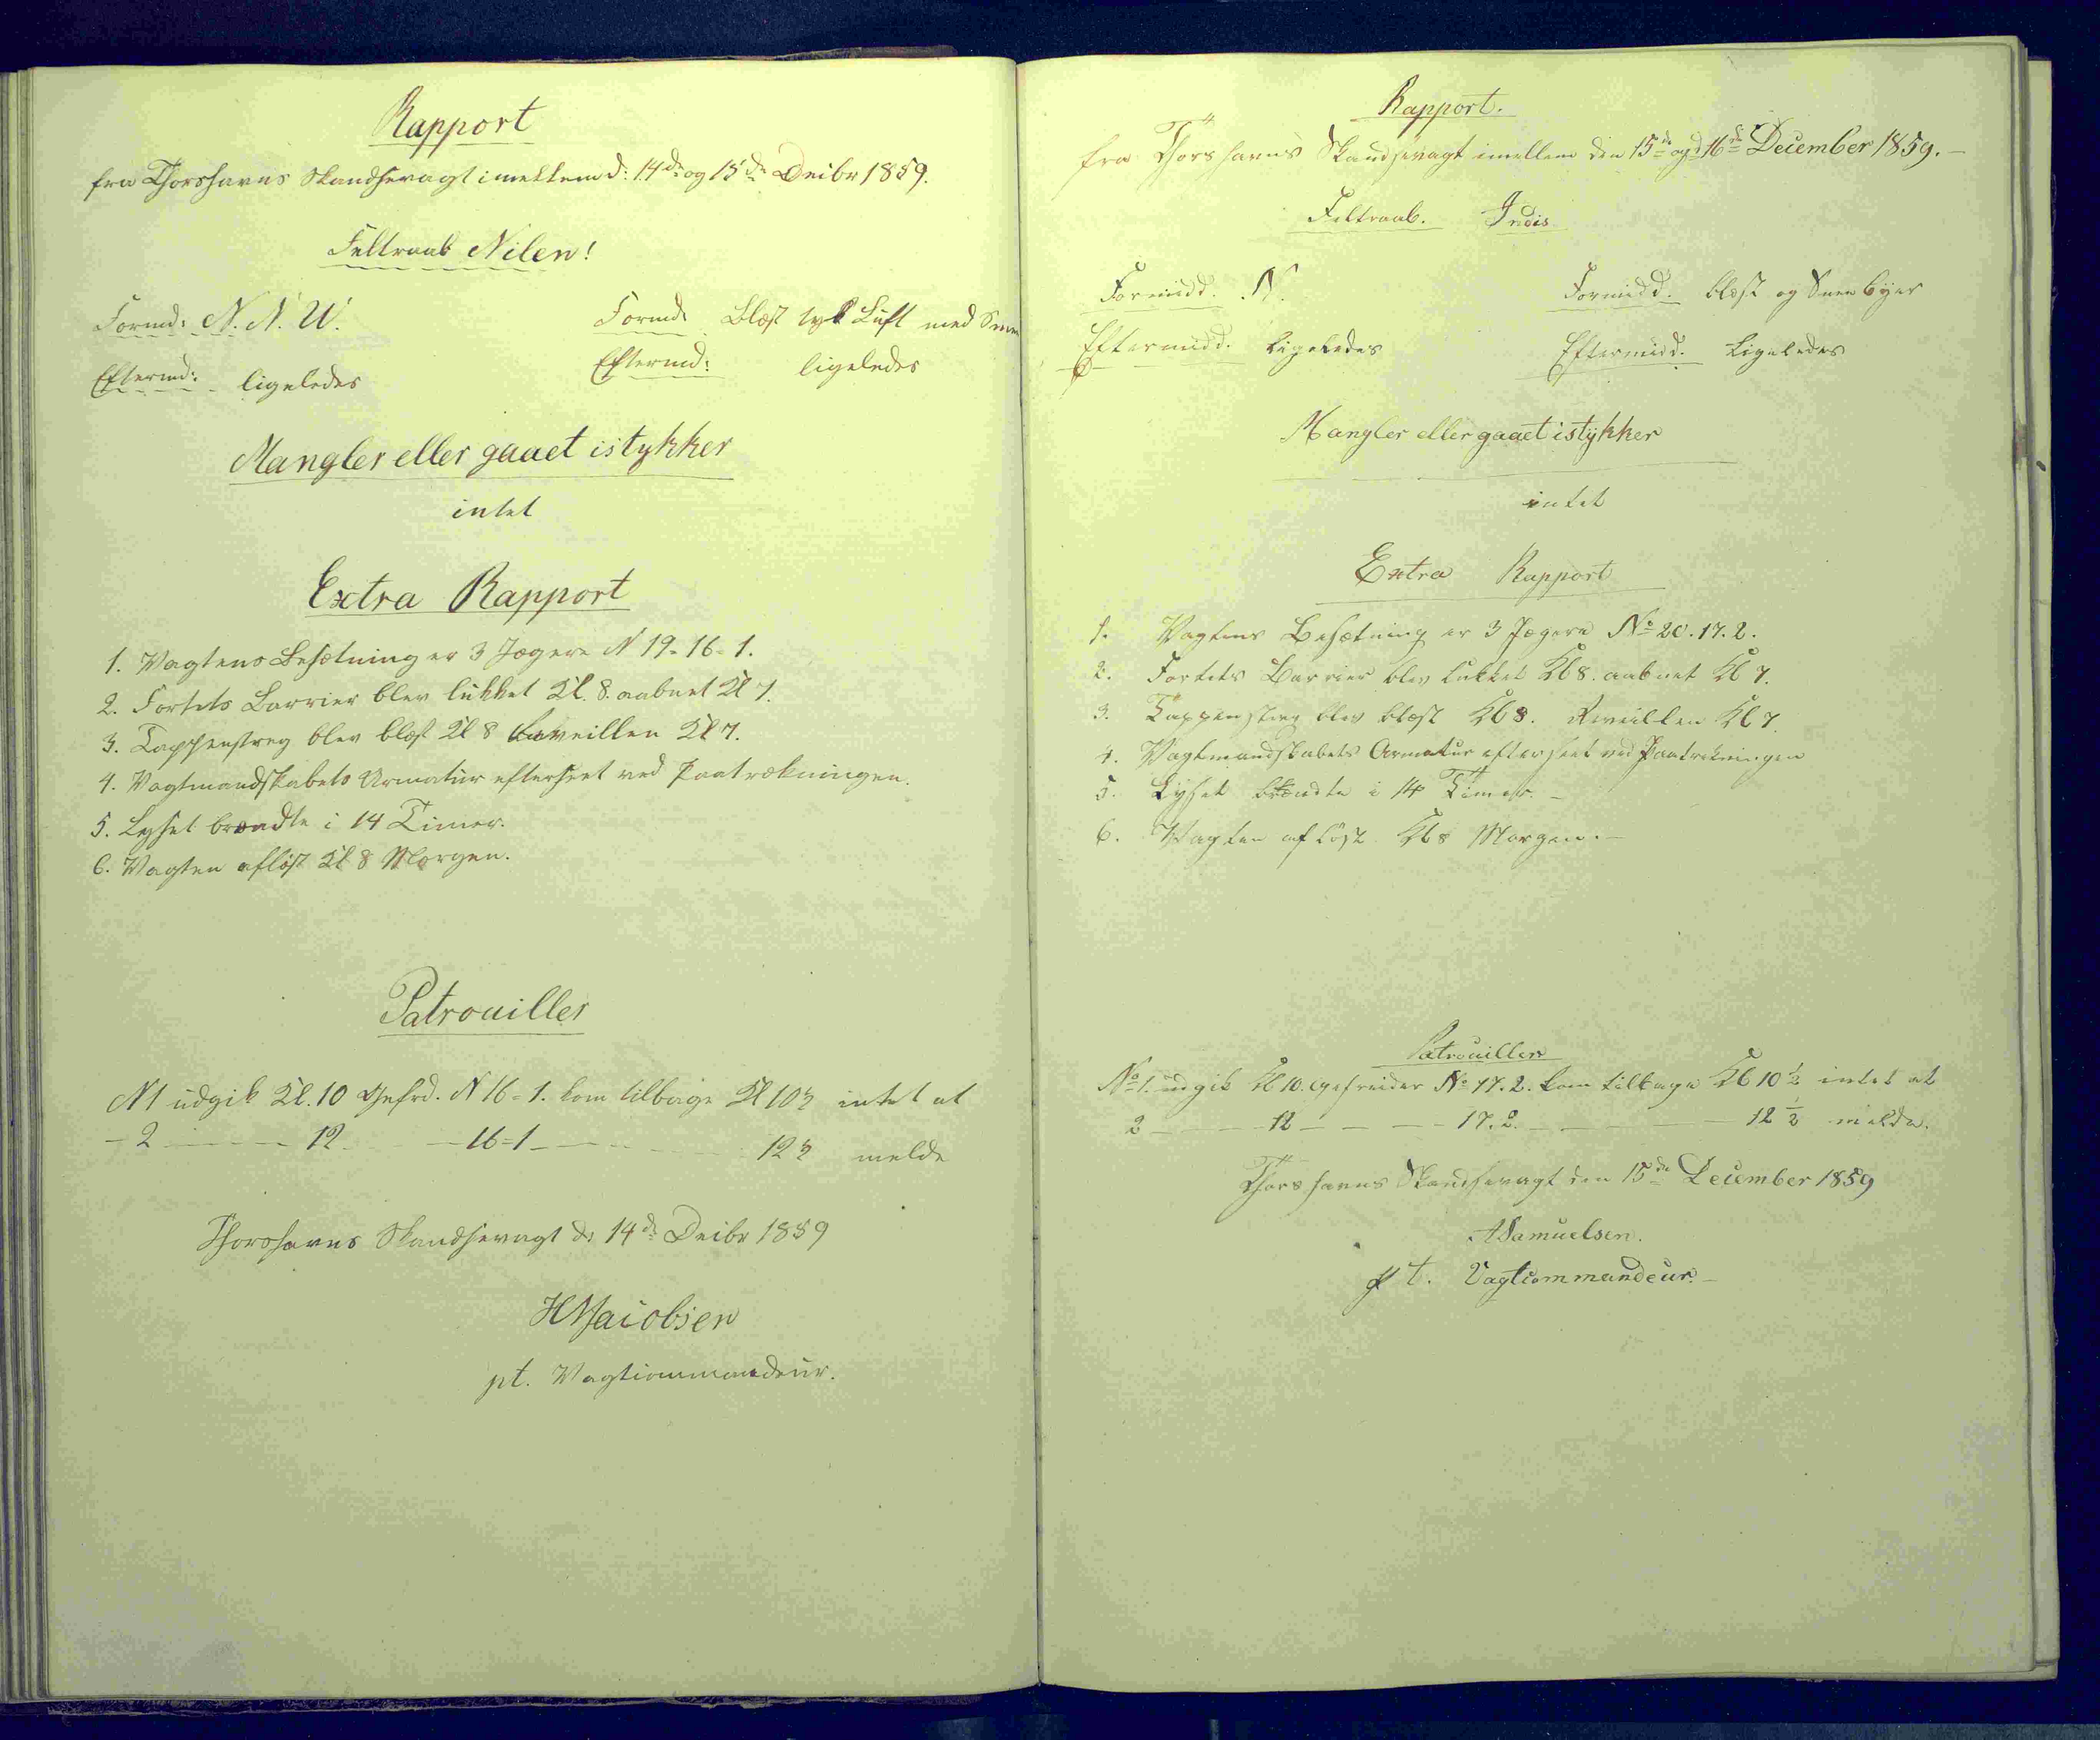 Rapport
fra Thorshavns Skandsevagt imellem d: 14de og 15de Decbr 1859.
Feltraab Nilen!
Formd: N. N. W.
Formd: Blæst tyk Luft med Snee
Eftermd: ligeledes
Eftermd: ligeledes
Mangler eller gaaet istykker
intet
Extra Rapport
1. Vagtens Besætning er 3 Jægere N 19-16-1.
2. Fortets Barrier blev lukket Kl. 8. aabnet Kl 7.
3. Tappenstreg blev blæst Kl 8 Reveillen Kl 7.
4. Vagtmandskabets Armatur efterseet ved Paatrækningen.
5. Lyset brændte i 14 Timer.
6. Vagten afløst Kl 8 Morgen.
Patrouiller
N 1 udgik Kl. 10 Gefrd. N 16-1. kom tilbage Kl 10½ intet at
- 2 - - - - 12 - - 16-1 - - - - - 12½ melde
Thorshavns Skandsevagt d: 14de Decbr 1859
Jacobsen
pt. Vagtcommandeur.
Rapport.
fra Thorshavns Skandsevagt imellem den 15de og d 16de December 1859.-
Feltraab. Indis
Formidd. N.
Formidd. blæst og Snee byer
Eftermidd. ligeledes
Eftermidd. ligeledes
Mangler eller gaaet istykker
intet
Extra Rapport
1. Vagtens Besætning er 3 Jægere No 20. 17. 2.
2. Fortets Barrier blev lukket Kl 8. aabnet Kl 7.
3. Tappenstreg blev blæst Kl 8. Reveillen Kl 7.
4. Vagtmandskabets Armatur efterseet ved Paatrækningen
5. Lyset brændte i 14 Timer.-
6. Vagten afløst Kl 8 Morgen.-
Patrouiller
No 1. udgik Kl 10. Gefreider No 17. 2. kom tilbage Kl 10 ½ intet at
2 - - - 12 - - - - 17. 2. - - - - 12 ½ melde.
Thorshavns Skandsevagt den 15de December 1859
ASamuelsen.
pt. Vagtcommandeur.-